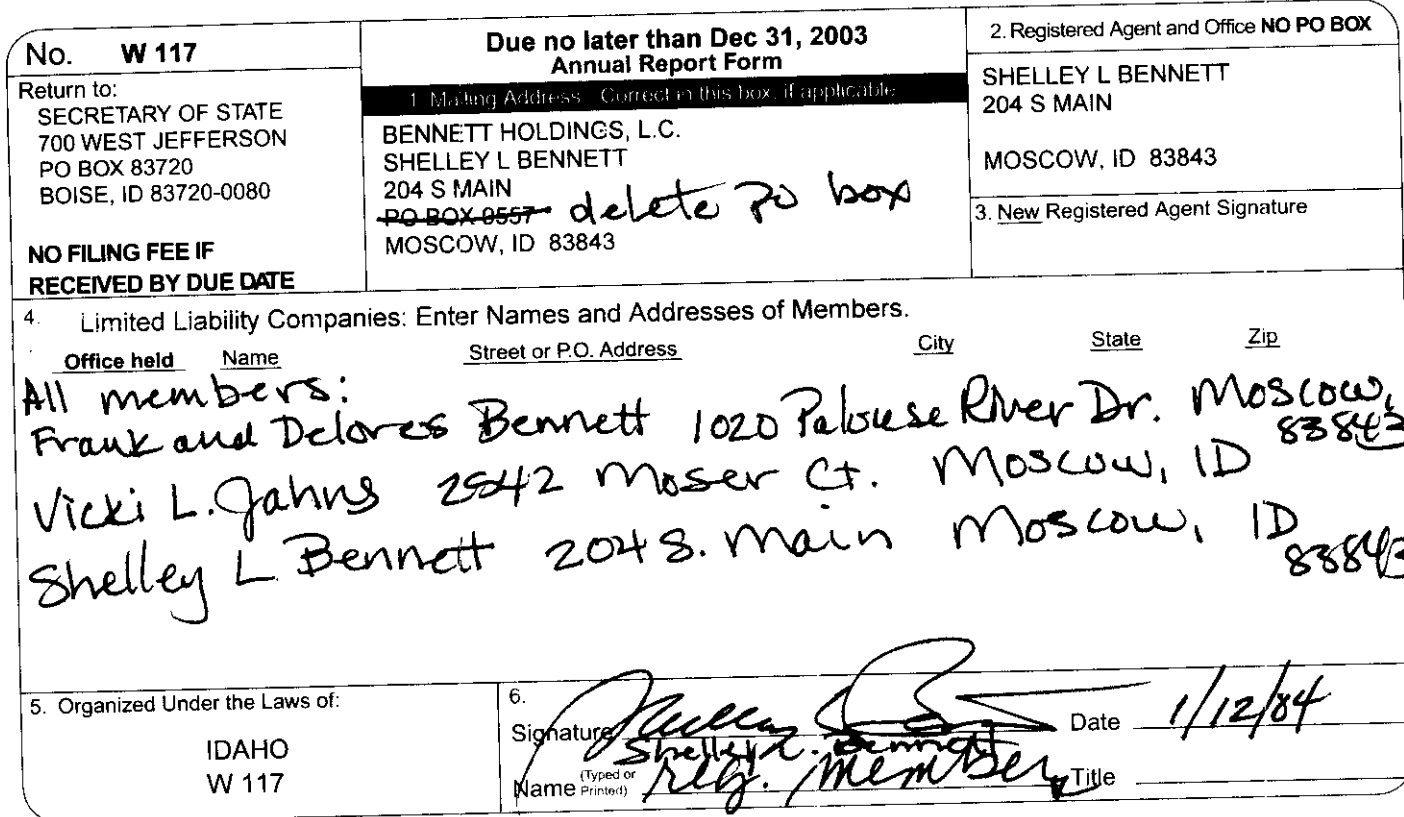 No. W 117
Return to:
SECRETARY OF STATE
700 WEST JEFFERSON
PO BOX 83720
BOISE, ID 83720-0080
NO FILING FEE IF
RECEIVED BY DUE DATE
Due no later than Dec 31, 2003
Annual Report Form
1. Mailing Address: Correct in this box, if applicable.
BENNETT HOLDINGS, L.C.
SHELLEY L BENNETT
204 S MAIN
PO BOX 0557 delete PO box
MOSCOW, ID 83843
2. Registered Agent and Office NO PO BOX
SHELLEY L BENNETT
204 S MAIN
MOSCOW, ID 83843
3. New Registered Agent Signature
4. Limited Liability Companies: Enter Names and Addresses of Members.
Office held Name Street or P.O. Address City State Zip
All members:
Frank and Delores Bennett 1020 Palouse River Dr. Moscow,
83843
Vicki L. Jahns 2542 Moser Ct. Moscow, ID
Shelley L Bennett 204 S. Main Moscow, ID
83843
5. Organized Under the Laws of:
IDAHO
W 117
6.
Signature Date 1/12/84
Shelley L. Bennett
Name (Typed or Printed) reg. member Title